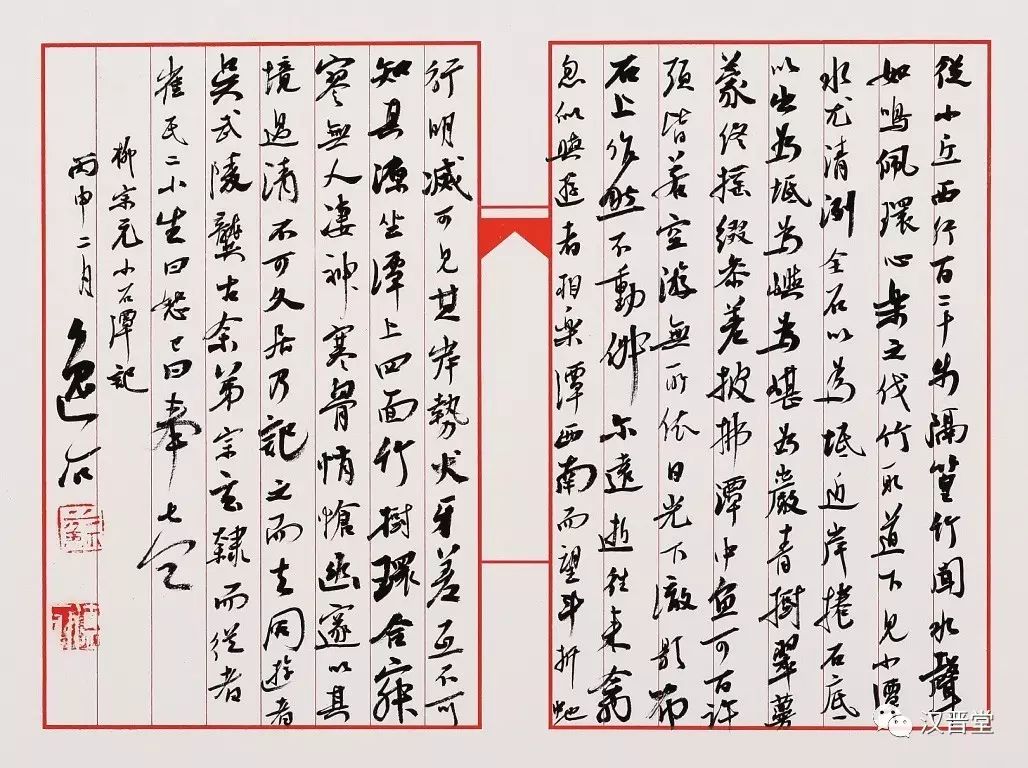 從小丘西行百二十步隔篁竹聞水聲
如鳴佩環心樂之伐竹取道下見小潭
水尤清洌全石以為坻近岸捲石底
以出為坻為嶼為堪為巖青樹翠蔓
蒙絡搖綴參差披拂潭中魚可百許
頭皆若空游無所依日光下澈影布
石上佁然不動俶尔遠逝往来翕
忽似與遊者相樂潭西南而望斗折蛇
行明滅可見其岸勢犬牙差互不可
知其源坐潭上四面竹樹環合寂
寥無人凄神寒骨悄愴幽邃以其
境過清不可久居乃記之而去同遊者
吳武陵龔古余弟宗玄隸而從者
崔氏二小生曰恕己曰奉壹
柳宗元小石潭記
丙申二月逸石
汉晋堂